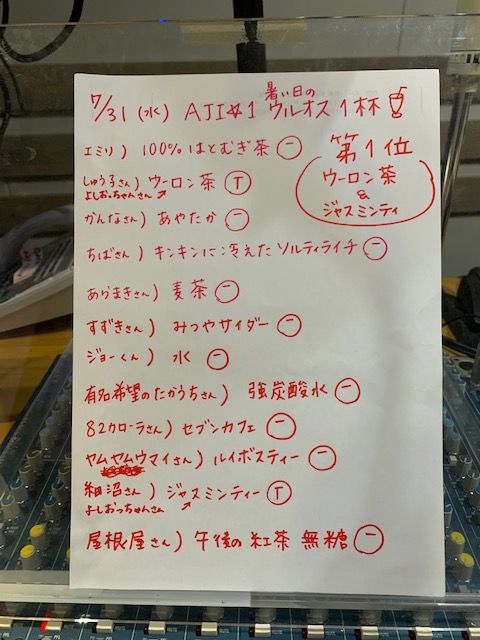 7/31 (水) AJI#1 暑い日の ウルオス 1杯
第1位
ウーロン茶
&
ジャスミンティ
エミリ) 100% はとむぎ茶 一
しゅう子さん) ウーロン茶 T
よしおっちゃんさん↗
かんなさん) あやたか 一
ちばさん) キンキンに冷えたソルティライチ 一
あらまきさん) 麦茶 一
すずきさん) みつやサイダー 一
ジョーくん) 水 一
有名希望のたかうちさん) 強炭酸水 一
82カローラさん) セブンカフェ 一
ヤムヤムウマイさん) ルイボスティー 一
細沼さん) ジャスミンティー T
よしおっちゃんさん ↗
屋根屋さん) 午後の紅茶 無糖 一